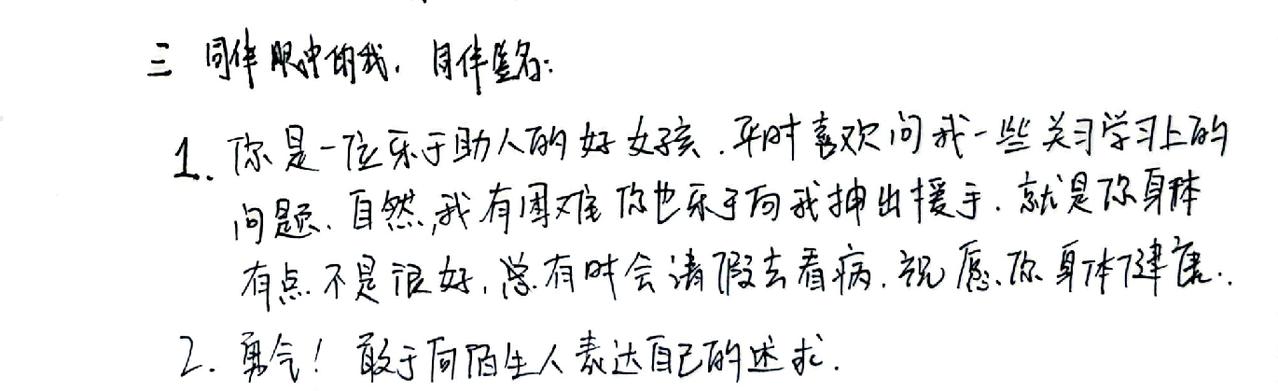 三 同伴眼中的我. 同伴签名:
1. 你是一位乐于助人的好女孩.平时喜欢问我一些关习学习上的
问题.自然,我有困难你也乐于向我抻出援手.就是你身体
有点不是很好,总有时会请假去看病.祝愿.你身体健康.
2. 勇气! 敢于向陌生人表达自己的述求.